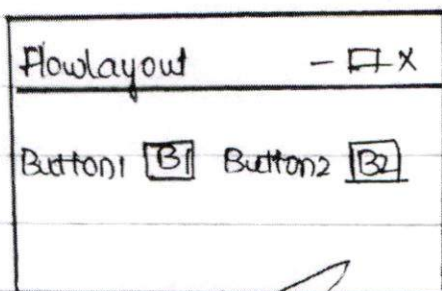 Flowlayout - □ X
Button1 B1 Button2 B2